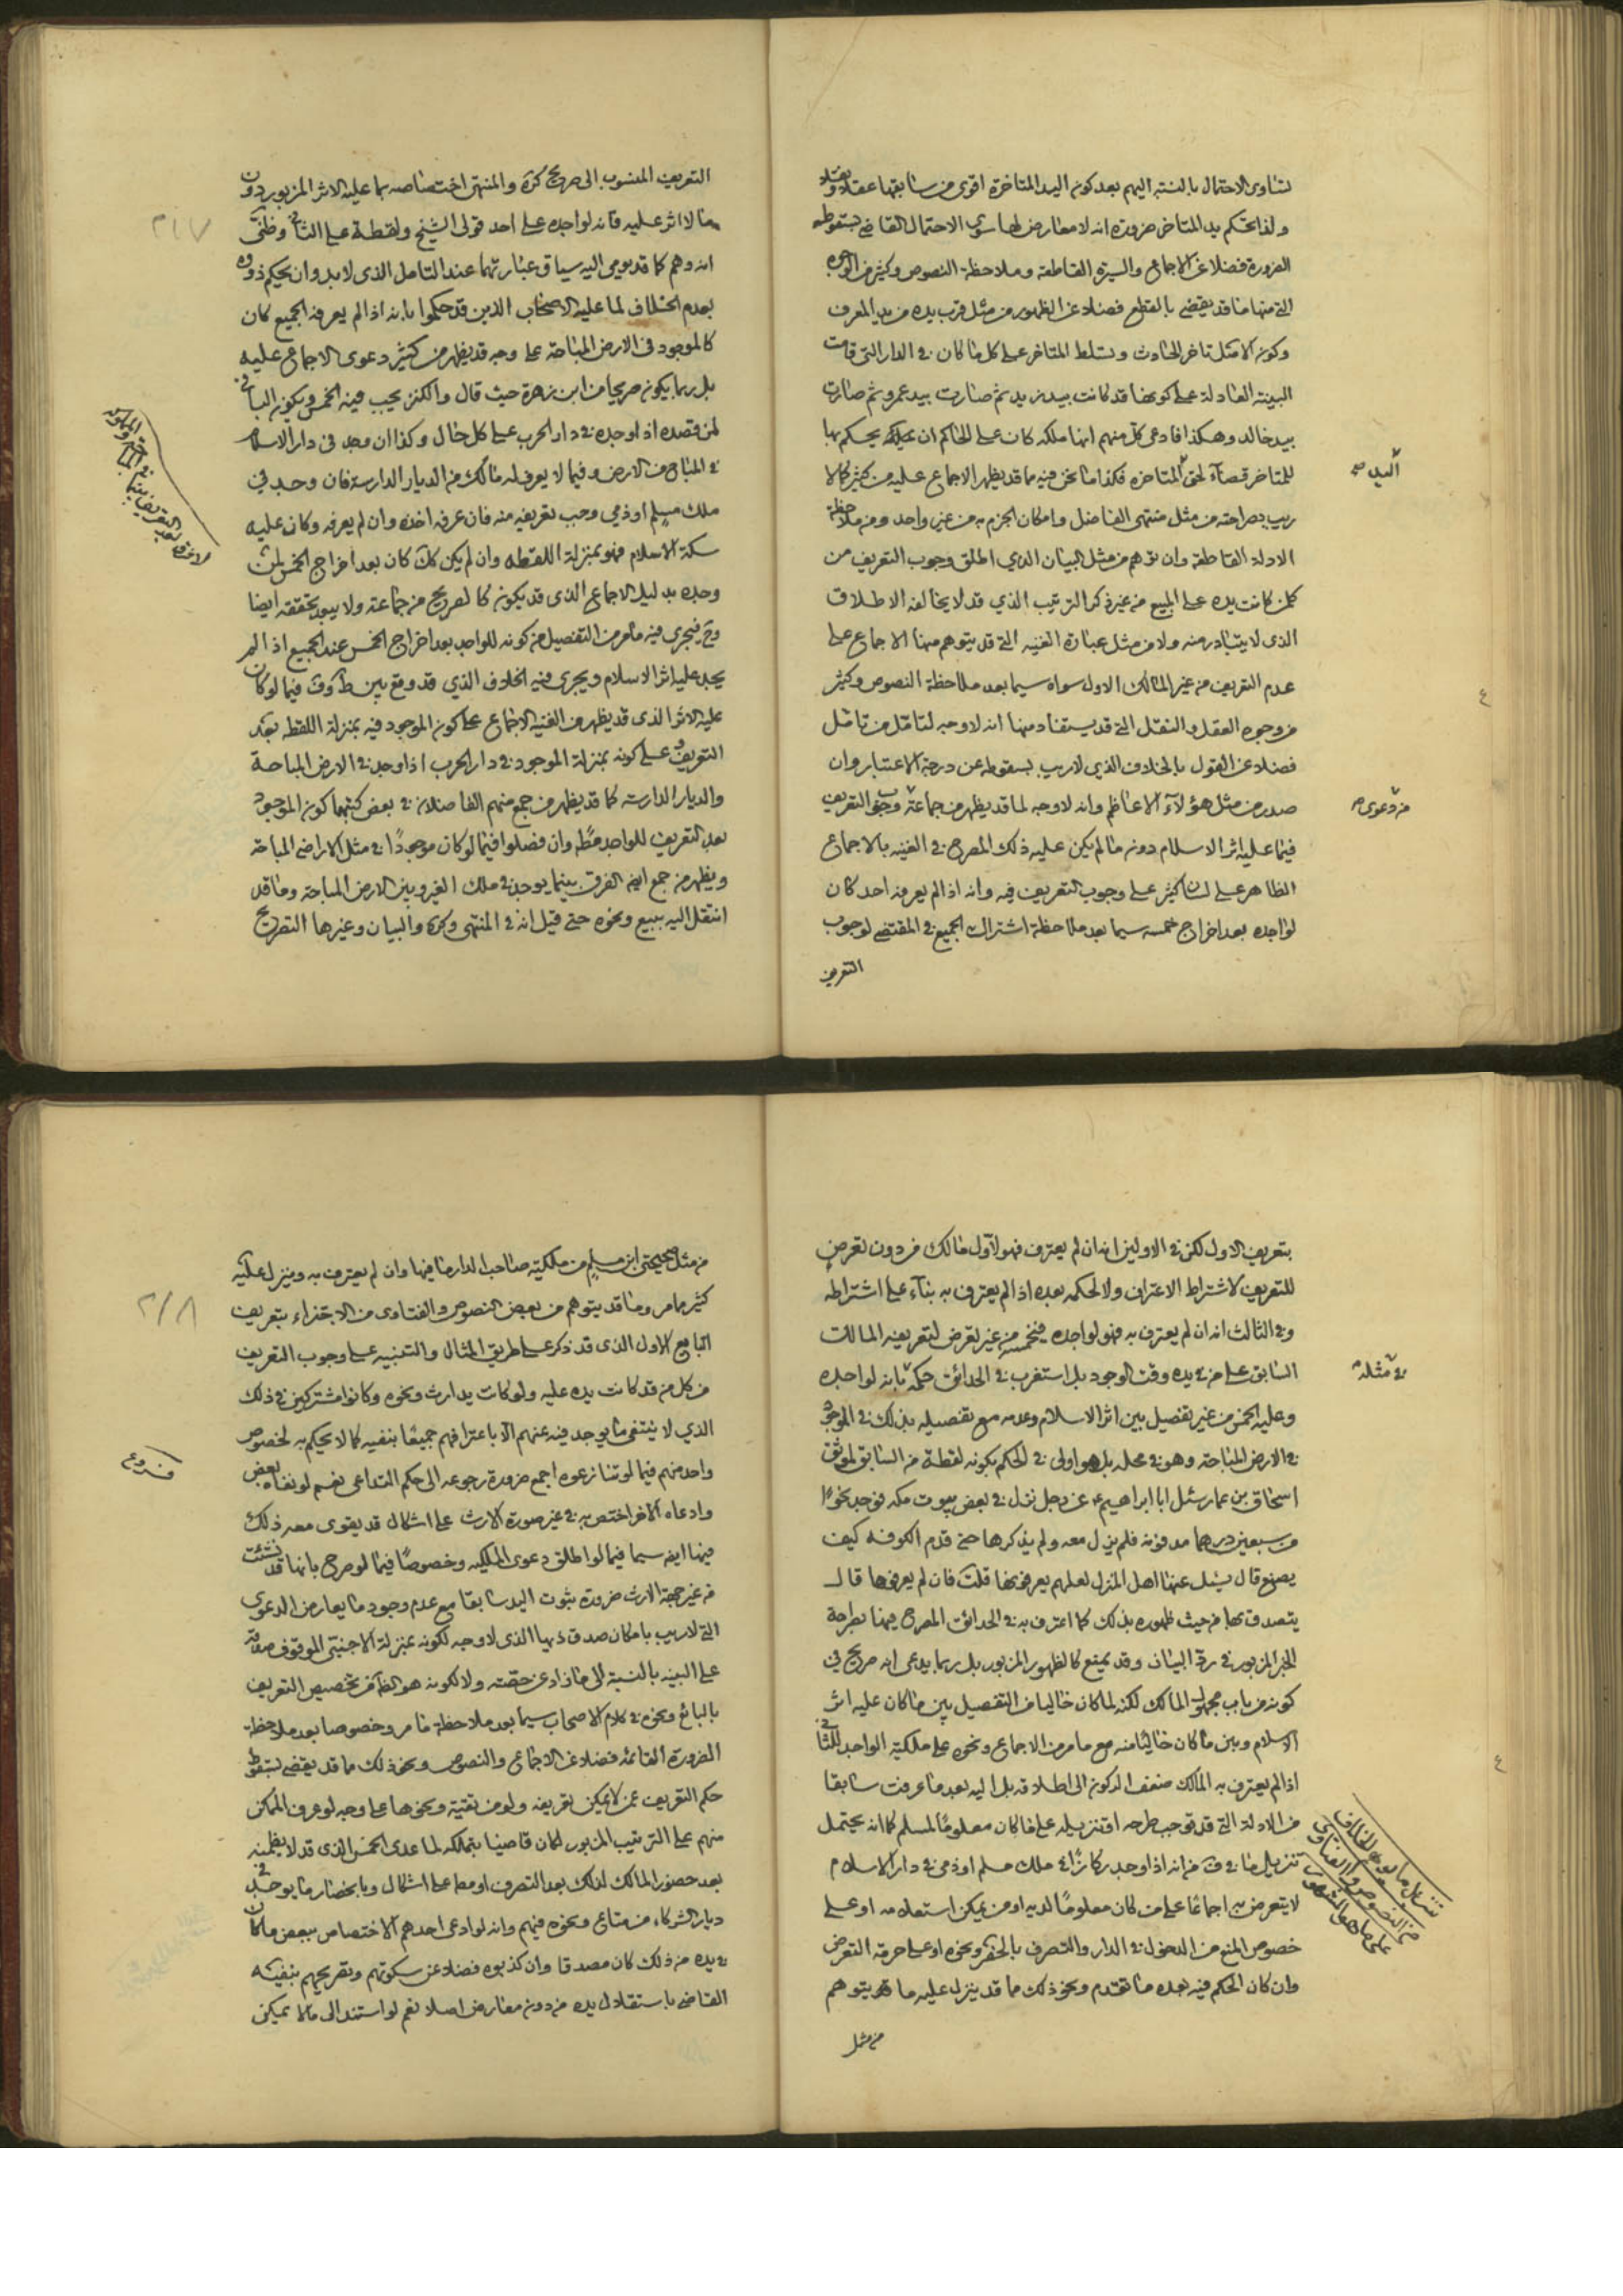 تساوى الاحتمال بالنسبة اليهم بعد كون اليد المتاخرة اقوى من سابقها عقلا ونقلا
ولذا يحكم بيد المتاخر ضرورة انه لا معارض لها سوى الاحتمال القاضي بسقوطه
الضرورة فضلا عن الاجماع والسيرة القاطعة وملاحظة النصوص وكثير من الوجوه
التي منها ما قد يقضي بالقطع فضلا عن الظهور من مثل قرب يده من يد المعرف
وكون الاصل تاخر الحادث وتسلط المتاخر على كل ما كان في الدار التي قامت
البينة العادلة على كونها قد كانت بيد زيد ثم صارت بيد عمرو ثم صارت
بيد خالد وهكذا فادعى كل منهم انها ملكه كان على الحاكم ان يحكم بها
للمتاخر قضآء لحق المتاخره فكذا ما نحن فيه مما قد يظهر الاجماع عليه من كثير كالا
اليد صح
ريب بصراحته من مثل منتهى الفاضل وامكان الجزم به من غير واحد ومن ملاحظة
الادلة القاطعة وان توهم من مثل البيان الذي اطلق وجوب التعريف من
كلمن كانت يده على المبيع من غير ذكر الترتيب الذي قد لا يخالفه الاطلاق
الذى لا يتبادر منه ولا من مثل عبارة الغنيه التي قد يتوهم منها الاجماع على
عدم التعريف من غير المالك الاول سواه سيما بعد ملاحظة النصوص وكثير
من وجوه العقل والنقل التي قد يستفاد منها انه لا وجه لتامل من تامل
فضلا عن القول بالخلاف الذي لا ريب بسقوطه عن درجة الاعتبار وان
صدر من مثل هؤلآء الاعاظم وانه لا وجه لما قد يظهر من جماعة وجوب التعريف
من دعوى صح
فيما عليه اثر الاسلام دونه ما لم يكن عليه ذلك المصرح في الغنيه بالاجماع
الظاهر على لسان كثير على وجوب التعريف فيه وانه اذا لم يعرفه احد كان
لواجده بعد اخراج خمسه سيما بعد ملاحظة اشتراك الجميع في المقتضي لوجوب
التعريف
التعريف المنسوب الى صريح كره والمنتهى اختصاصه بما عليه الاثر المزبور دون
ما لا اثر عليه فانه لواجده على احد قولى الشيخ ولقطة على الثاني وظني
٢١٧
انه وهم كما قد يومى اليه سياق عبارتهما عند التامل الذى لا بد وان يحكم ذووه
بعدم الخلاف لما عليه الاصحاب الذين قد حكموا بانه اذا لم يعرفه الجميع كان
كالموجود فى الارض المباحة على وجه قد يظهر من كثير دعوى الاجماع عليه
بل ربما يكون صريحا من ابن زهرة حيث قال والكنز يجب فيه الخمس ويكون الباقي
لمن قصده اذا وجده في دار الحرب على كل حال وكذا ان وجد فى دار الاسلام
في المباح من الارض وفيما لا يعرف له مالك من الديار الدارسة فان وجد في
ملك مسلم او ذمي وجب تعريفه منه فان عرفه اخذه وان لم يعرفه وكان عليه
سكة الاسلام فهو بمنزلة اللقطه وان لم يكن كك كان بعد اخراج الخمس لمن
وجده بدليل الاجماع الذى قد يكون كالصريح من جماعة ولا يبعد تحققه ايضا
وح فيجرى فيه ما مر من التفصيل من كونه للواجد بعد اخراج الخمس عند الجميع اذا لم
يجد عليه اثر الاسلام ويجرى فيه الخلاف الذي قد وقع بين فيما لو كان
عليه الاثر الذى قد يظهر من الغنيه الاجماع على كون الموجود فيه بمنزلة اللقطه بعد
التعريف وعلى كونه بمنزلة الموجود في دار الحرب اذا وجد في الارض المباحة
والديار الدارسة كما قد يظهر من جمع منهم الفاضلان في بعض كتبهما كون الموجود
بعد التعريف للواجد مط وان فصلوا فيما لو كان موجودًا في مثل الاراضى المباحة
ويظهر من جمع ايض الفرق بين ما يوجد في ملك الغير وبين الارض المباحة وما قد
انتقل اليه ببيع ونحوه حتى قيل انه في المنتهى وكره والبيان وغيرها التصريح
بتعريف الاول لكن في الاولين انه ان لم يعترف فهو لاول مالك من دون تعرض
للتعريف لاشتراط الاعتراف ولا لحكمه بعده اذا لم يعترف به بنآء على اشتراطه
وفي الثالث انه ان لم يعترف به فهو لواجده من غير تعرض لتعريفه المالك
السابق على من في يده وقت الوجود بل استغرب في الحدائق حكمه بانه لواجده
في مثله صح
وعليه الخمس من غير تفصيل بين اثر الاسلام وعدمه مع تفصيله بذلك في الموجود
في الارض المباحة وهو في محله بل هو اولى في الحكم بكونه لقطة من السابق لموثق
اسحاق بن عمار سئل ابا ابراهيم ع عن رجل نزل في بعض بيوت مكه فوجد نحوًا
من سبعين درهما مدفونه فلم يزل معه ولم يذكرها حتى قدم الكوفه كيف
يصنع قال يسئل عنها اهل المنزل لعلهم يعرفونها قلت فان لم يعرفوها قال
يتصدق بها من حيث ظهوره بذلك كما اعترف به في الحدائق المصرح فيها بطرحه
الخبر المزبور في رد البيان وقد يمنع كالظهور المزبور بل ربما يدعى انه صريح في
كونه من باب مجهول المالك لكنه لما كان خاليا من التفصيل بين ما كان عليه اثر
الاسلام وبين ما كان خاليا منه مع ما مر من الاجماع ونحوه على ملكية الواجد للثاني
اذا لم يعترف به المالك ضعف الركون الى اطلاقه بل اليه بعد ما عرفت سابقا
من الادلة التي قد توجب طرحه او تنزيله على ما كان معلومًا لمسلم كما انه يحتمل
تنزيل ما في من انه اذا وجد ركازًا في ملك مسلم او ذمي في دار الاسلام
لا يتعرض به اجماعًا على من كان معلومًا لديه او من يمكن استعلامه او على
خصوص المنع من الدخول في الدار والتصرف بالحفر ونحوه او على حرمة التعرض
وان كان الحكم فيه بعده ما تقدم ونحو ذلك مما قد ينزل عليه ما قد يتوهم
من مثل
من مثل صحيحتي ابن مسلم من ملكية صاحب الدار ما فيها وان لم يعترف به وينزل عليه
كثير مما مر وما قد يتوهم من بعض النصوص والفتاوى من الاجتزاء بتعريف
٢١٨
البايع الاول الذى قد ذكر على طريق المثال والتنبيه على وجوب التعريف
من كل من قد كانت يده عليه ولو كانت يد ارث ونحوه وكانوا مشتركين في ذلك
الذي لا ينتفى ما يوجد فيه عنهم الا باعترافهم جميعًا بنفيه كما لا يحكم به لخصوص
واحد منهم فيما لو تنازعوه اجمع ضرورة رجوعه الى حكم التداعى نعم لو نفاه بعض
فروع
وادعاه الاخر اختص به في غير صورة الارث على اشكال قد يقوى معه ذلك
فيها ايض سيما فيما لو اطلق دعوى الملكيه وخصوصًا فيما لو صرح بانها قد
من غير جهة الارث ضرورة ثبوت اليد سابقا مع عدم وجود ما يعارض الدعوى
التي لا ريب بامكان صدق ذيها الذى لا وجه لكونه بمنزلة الاجنبى الموقوف صدقه
على البينه بالنسبة الى ما زاد عن حصته ولا لكونه هو الظاهر من تخصيص التعريف
بالبائع ونحوه في كلام الاصحاب سيما بعد ملاحظة ما مر وخصوصا بعد ملاحظة
الضرورة القائمه فضلا عن الاجماع والنصوص ونحو ذلك مما قد يقضي بسقوط
حكم التعريف عمن لا يمكن تعريفه ولو من تقية ونحوها على وجه لو عرف الممكن
منهم على الترتيب المزبور لكان قاضيا بتملكه لما عدى الخمس الذى قد لا يظمنه
بعد حضور المالك لذلك بعد التصرف او مط على اشكال وبانحصار ما يوجد في
ديار الشركاء من متاع ونحوه فيهم وانه لو ادعى احدهم الاختصاص ببعض ما كان
في يده من ذلك كان مصدقا وان كذبوه فضلا عن سكوتهم وتصريحهم بنفيه
القاضي باستقلال يده من دون معارض اصلا نعم لو استند الى ما لا يمكن